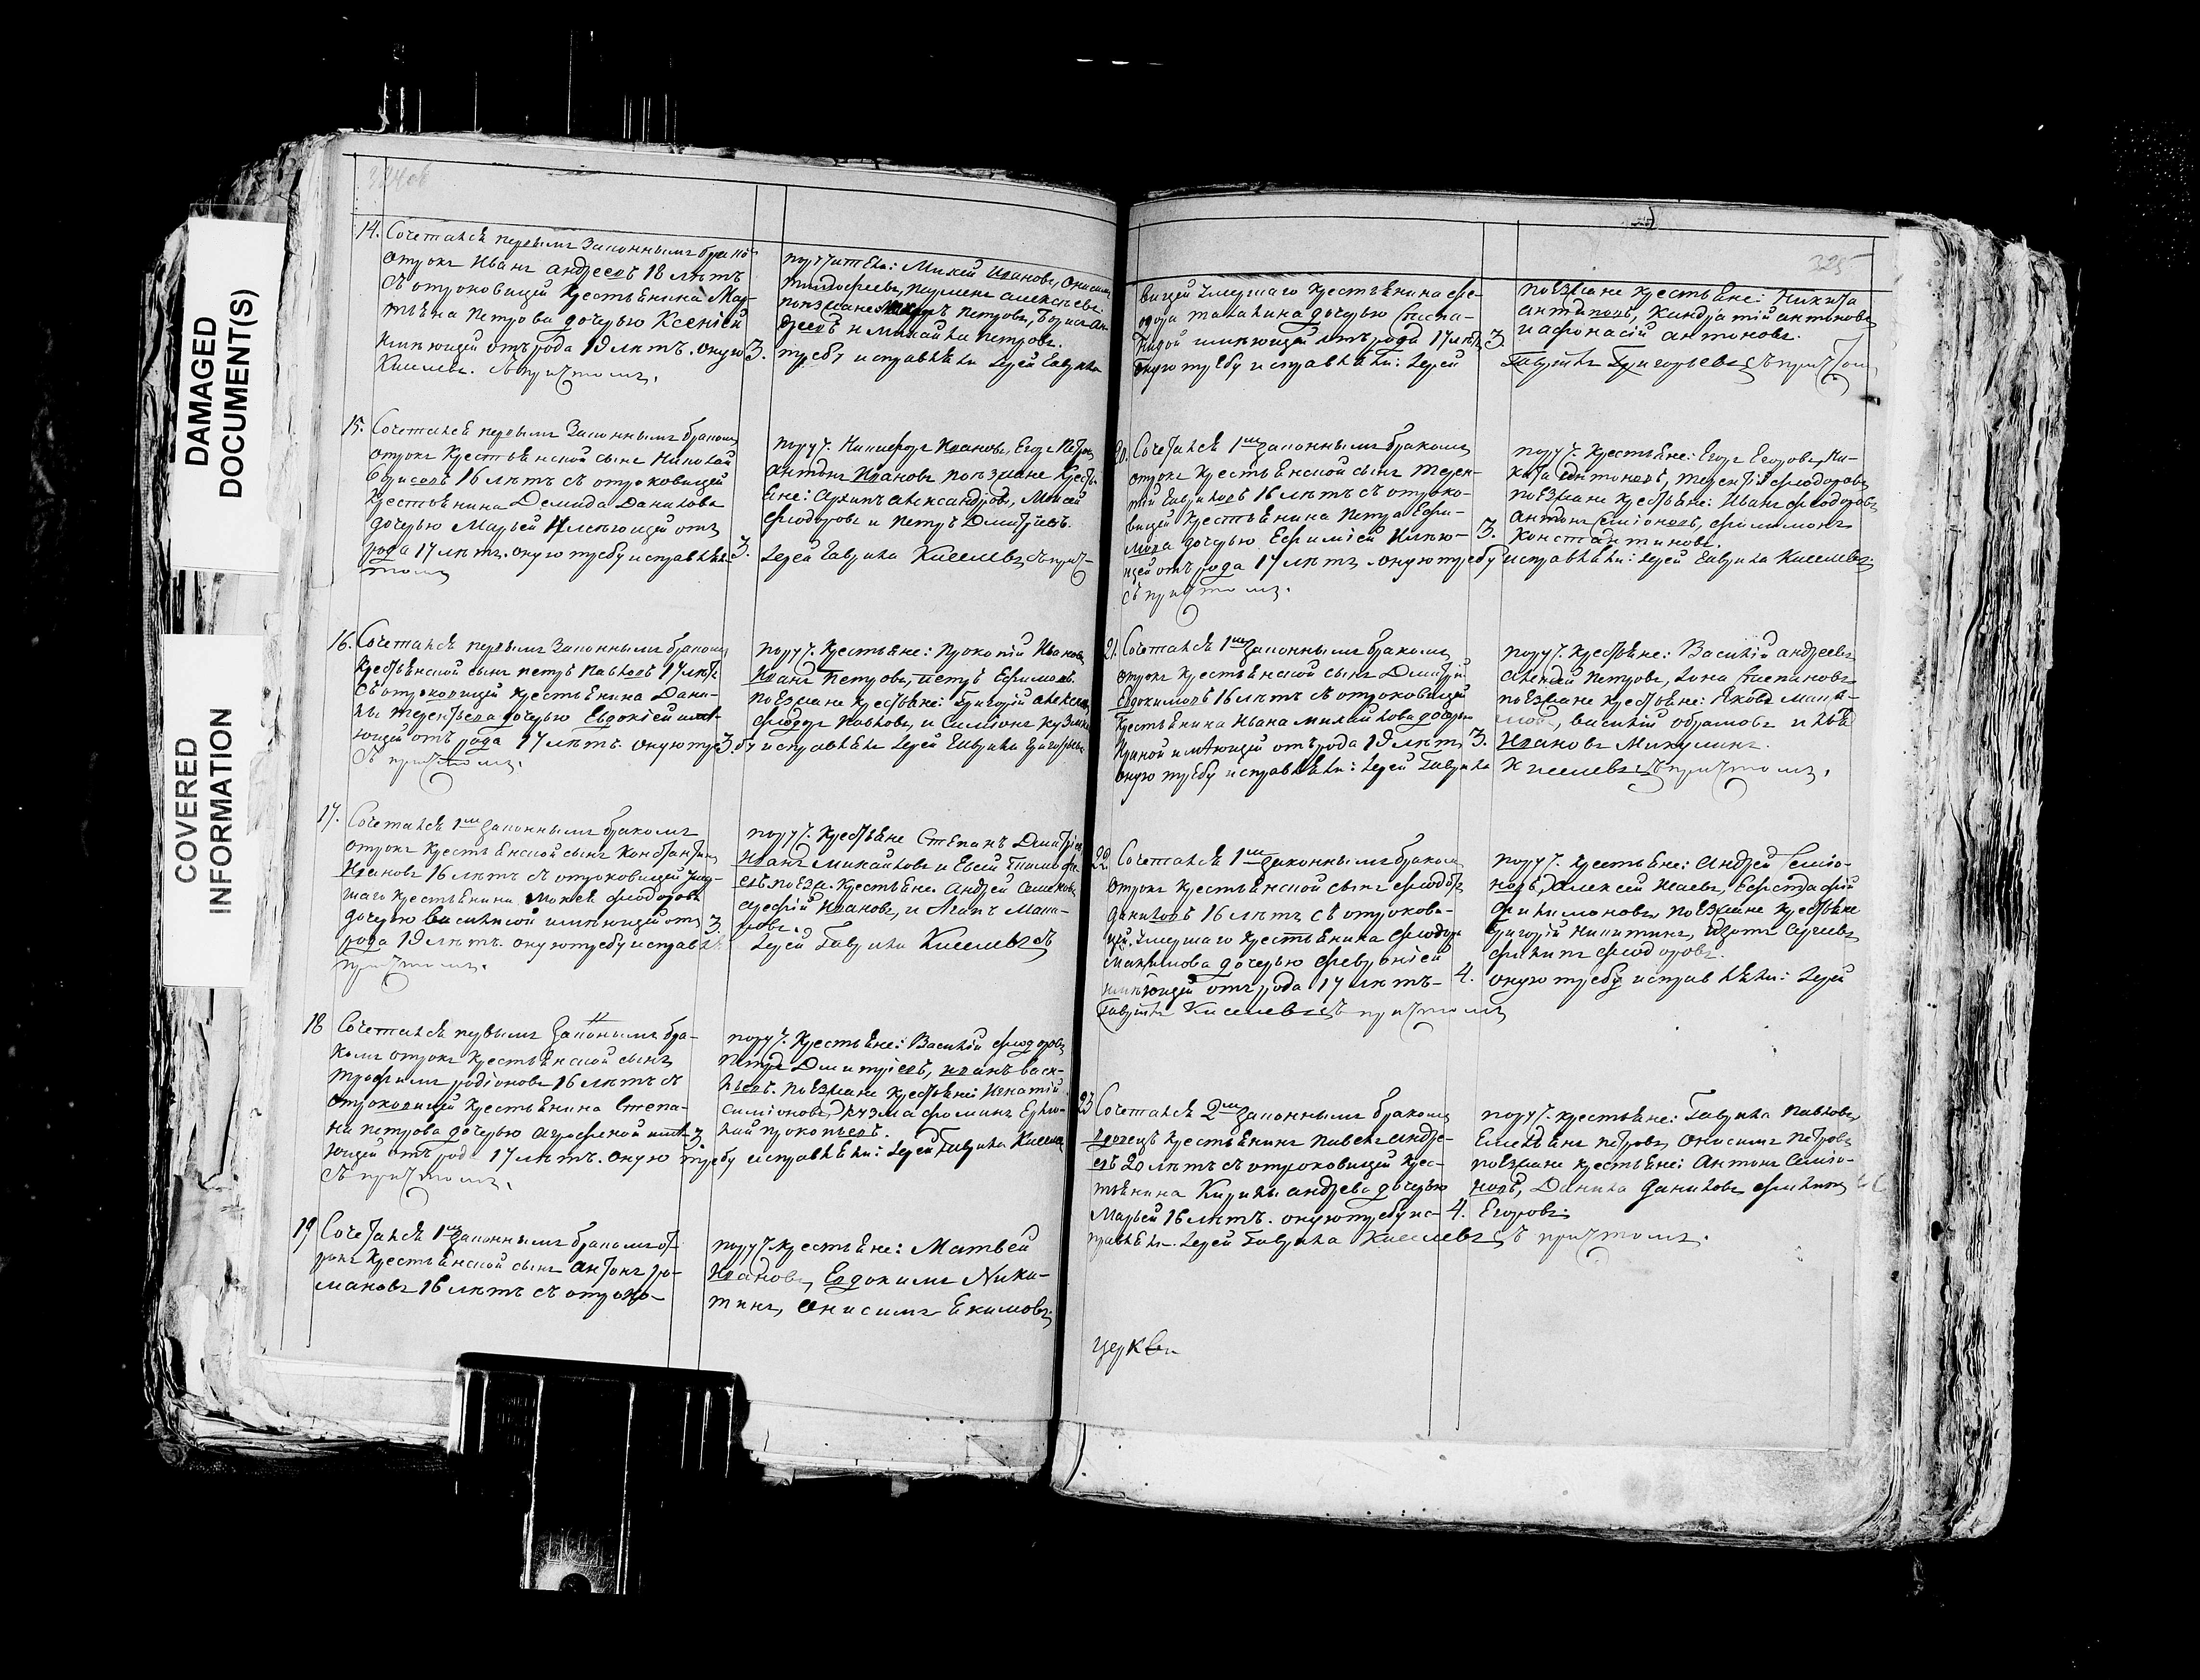 DAMAGED
DOCUMENT(S)
COVERED
INFORMATION
324об
14. Сочетался первымъ Законнымъ брако
отрокъ Иванъ андреевъ 18 лѣтъ
Съ отроковицей Крестьянина Мар-
тьяна Петрова дочерью Ксеніей
имѣющей отъ рода 19 лѣтъ. оную 3.
Киселевъ. Съ причтомъ.
поручители: Михей Ивановъ, Онисимъ
Тимофеевъ, парменъ алексѣевъ.
поезжане Петровъ, Борисъ Ан
дреевъ и Михайла Петровъ.
требу исправляли Іерей Гаврила
15. Сочетался первымъ Законнымъ бракомъ
отрокъ Крестьянской сынъ Николай
Борисовъ 16 лѣтъ съ отроковицей
Крестьянина Демида Данилова
дочерью Марьей Имѣющей отъ
рода 17 лѣтъ. оную требу исправлял 3.
томъ
поруч. Никифоръ Ивановъ, Егоръ Петров
антонъ Ивановъ поезжане Крест
яне: Архипъ александровъ, Моисей
Фіодоровъ и Петръ Дмитріевъ.
Іерей Гаврила Киселевъ съ прич-
16. Сочетался первымъ Законнымъ бракомъ
Крестьянской сынъ петръ Павловъ 17 лѣтъ
съ отроковицей Крестьянина Дани-
лы терентьева дочерью Евдокіей имѣ-
ющей отъ рода 17 лѣтъ. оную тре 3.
Съ причтомъ.
поруч. Крестьяне: Прокопій Ивановъ
Иванъ Петровъ, петръ Ефимовъ.
поезжане крестьяне: Григорій алексеев
Фіодоръ Павловъ, и Симіонъ Кузмин
бу исправляли Іерей Гаврила Григорьевъ
17. Сочетался 1мъ Законнымъ бракомъ
отрокъ Крестьянской сынъ Константинъ
Ивановъ 16 лѣтъ съ отроковицей умер-
шаго Крестьянина Мокея Фіодорова
дочерью Василисой имѣющей отъ 3.
рода 19 лѣтъ. оную требу исправля
причтомъ.
поруч. Крестьяне Степанъ Дмитріев
Иванъ Михайловъ и Евсей Тимофе-
евъ. поезж. Крестьяне. Андрей Семеновъ
Ивановъ, и Агапъ Мака-
ровъ.
Іерей Гаврила Киселевъ съ
18 Сочетался первымъ Законымъ бра-
комъ отрокъ Крестьянской сынъ
Трофимъ родіоновъ 16 лѣтъ съ
отроковицей Крестьянина Степа-
на петрова дочерью аграфеной имѣ 3.
ющей отъ рода 17 лѣтъ. оную
Съ причтомъ.
поруч. Крестьяне: Василій Фіодоровъ
Петръ Дмитріевъ, иванъ васи-
льевъ. поезжане Крестьяне: Игнатій
симіоновъ, Кузма фоминъ Ермо-
лай прокопьевъ.
требу исправляли: Іерей Гаврила Киселевъ
19 Сочетался 1мъ Законнымъ бракомъ от
рокъ Крестьянской сынъ антонъ ро-
мановъ 16 лѣтъ съ отроко-
поруч. Крестьяне: Матвей
Ивановъ, Евдокимъ Ники-
тинъ, Онисимъ Екимовъ,
325
вицей умершаго Крестьянина Фе-
одота Талалина дочерью Степа-
нидой имѣющей отъ рода 17 лѣтъ 3
оную требу исправляли: Іерей
поезжане крестьяне: Никита
антиповъ, Киндратій антоновъ
и афонасій антоновъ.
Гаврила Григорьевъ съ причтом
20. Сочетался 1мъ законнымъ бракомъ
отрокъ Крестьянской сынъ Терен-
тій Гавриловъ 16 лѣтъ съ отроко-
вицей Крестьянина Петра Ефи-
мова дочерью Ефиміей Имѣю- 3.
щей отъ рода 17 лѣтъ. оную требу исправляли: Іерей Гаврила Киселевъ
съ причтомъ.
поруч. Крестьяне: Егоръ Егоровъ, Ни-
кита антоновъ, терентій Фіодоровъ
поезжане Крестьяне: Иванъ Фіодоровъ
Антонъ Симіоновъ, Филимонъ
Константиновъ.
21. Сочетался 1мъ Законнымъ бракомъ
отрокъ Крестьянской сынъ Дмитрій
Евдокимовъ 16 лѣтъ съ отроковицей
Крестьянина Ивана михайлова дочерью
Ириной имѣющей отъ рода 19 лѣтъ 3.
оную требу исправляли: Іерей Гаврила
поруч. Крестьяне: Василій андреевъ
алексей Петровъ, Іона Степановъ
поезжане крестьяне: Яковъ Макси-
мовъ, василій абрамовъ и
Ивановъ Микулинъ.
Киселевъ: съ причтомъ.
22 Сочетался 1мъ законнымъ бракомъ
отрокъ Крестьянской сынъ Фіодоръ
даниловъ 16 лѣтъ съ отрокови-
цей. Умершаго Крестьянина Фіодора
максимова дочерью Февроніей
имѣющей отъ рода 17 лѣтъ- 4.
Гаврила Киселевъ съ причтомъ
поруч. Крестьяне: Андрей Симіо-
новъ, Алексей Исаевъ, Ефстафій
Филимоновъ поезжане крестьяне
Григорій Никитинъ, Изотъ Сергеевъ
филипъ Фіодоровъ.
оную требу исправляли: Іерей
23 Сочетался 2мъ законнымъ бракомъ
вдовецъ Крестьянинъ Павелъ андре-
евъ 20 лѣтъ съ отроковицей Крес-
тьянина Кирилы андрева дочерью
Марьей 16 лѣтъ. оную требу ис- 4.
правляли. Іерей Гаврила Киселевъ съ причтомъ.
поруч. крестьяне: Гаврила Павловъ,
Емельянъ петровъ, Онисимъ петровъ
поезжане крестьяне: Антонъ Симіо-
новъ, Данила Даниловъ Филипъ
Егоровъ.
церкви